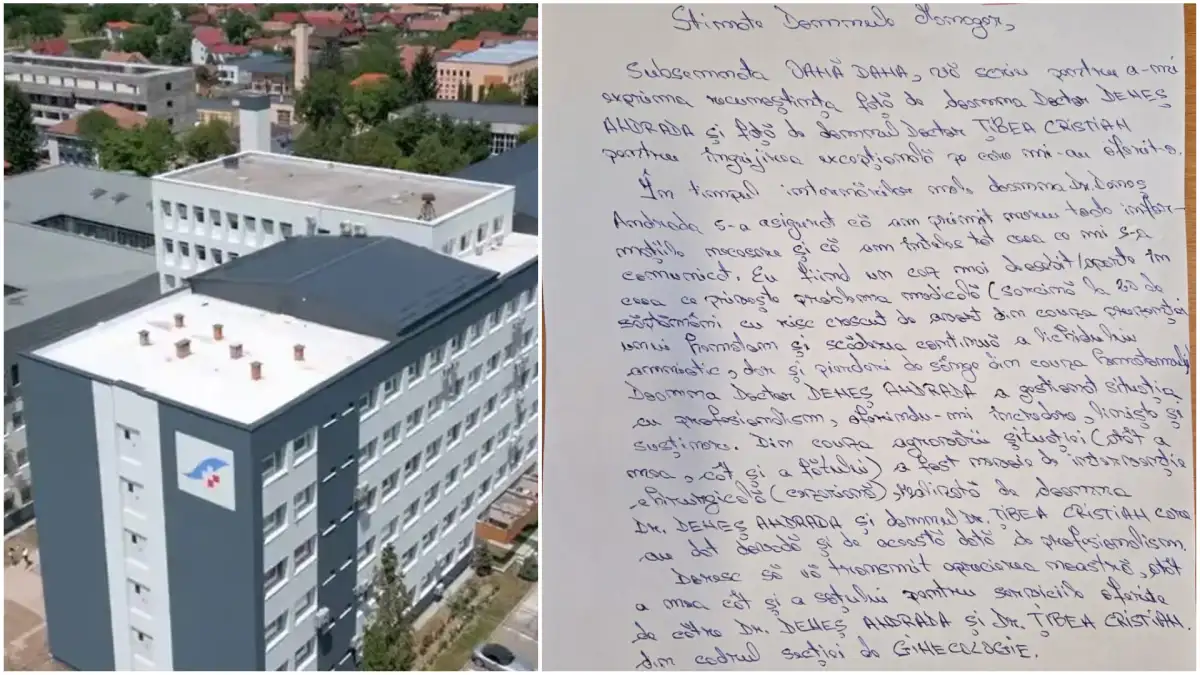 Stimate Domnule Manager,
Subsemnata VANĂ DANA, vă scriu pentru a-mi
exprima recunoștința față de doamna Doctor DENEȘ
ANDRADA și față de domnul Doctor ȚIBEA CRISTIAN
pentru îngrijirea excepțională pe care mi-au oferit-o.
În timpul internărilor mele doamna Dr. Deneș
Andrada s-a asigurat că am primit mereu toate infor-
mațiile necesare și că am înteles tot ceea ce mi s-a
comunicat. Eu fiind un caz mai deosebit/aparte în
ceea ce privește problema medicală (sarcină la 20 de
săptămâni cu risc crescut de avort din cauza prezenței
unui hematom și scăderea continuă a lichidului
amniotic, dar și pierderi de sânge din cauza hematomului)
Doamna Doctor DENEȘ ANDRADA a gestionat situația
cu profesionalism, oferindu-mi încredere, liniște și
susținere. Din cauza agravării situației (atât a
mea, cât și a fătului) a fost nevoie de intervenție
chirurgicală (cezariană), realizată de doamna
Dr. DENEȘ ANDRADA și domnul Dr. ȚIBEA CRISTIAN care
au dat dovadă și de această dată de profesionalism.
Doresc să vă transmit aprecierea noastră, atât
a mea cât și a soțului pentru serviciile oferite
de către Dr. DENEȘ ANDRADA și Dr. ȚIBEA CRISTIAN.
din cadrul secției de GINECOLOGIE.